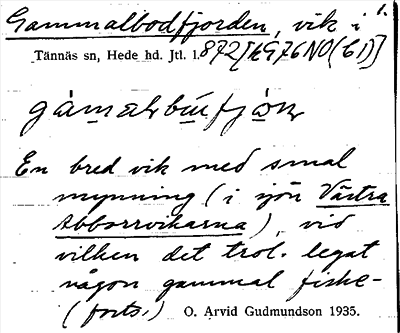 Gammalbodfjorden, vik i 1.
Tännäs sn, Hede hd. Jtl. l. 872[kG76NO(C1)]
En bred vik med smal
mynning (i sjön Västra
Abborrvikarna), vid
vilken det trol. legat
någon gammal fiske-
(forts.) O. Arvid Gudmundson 1935.